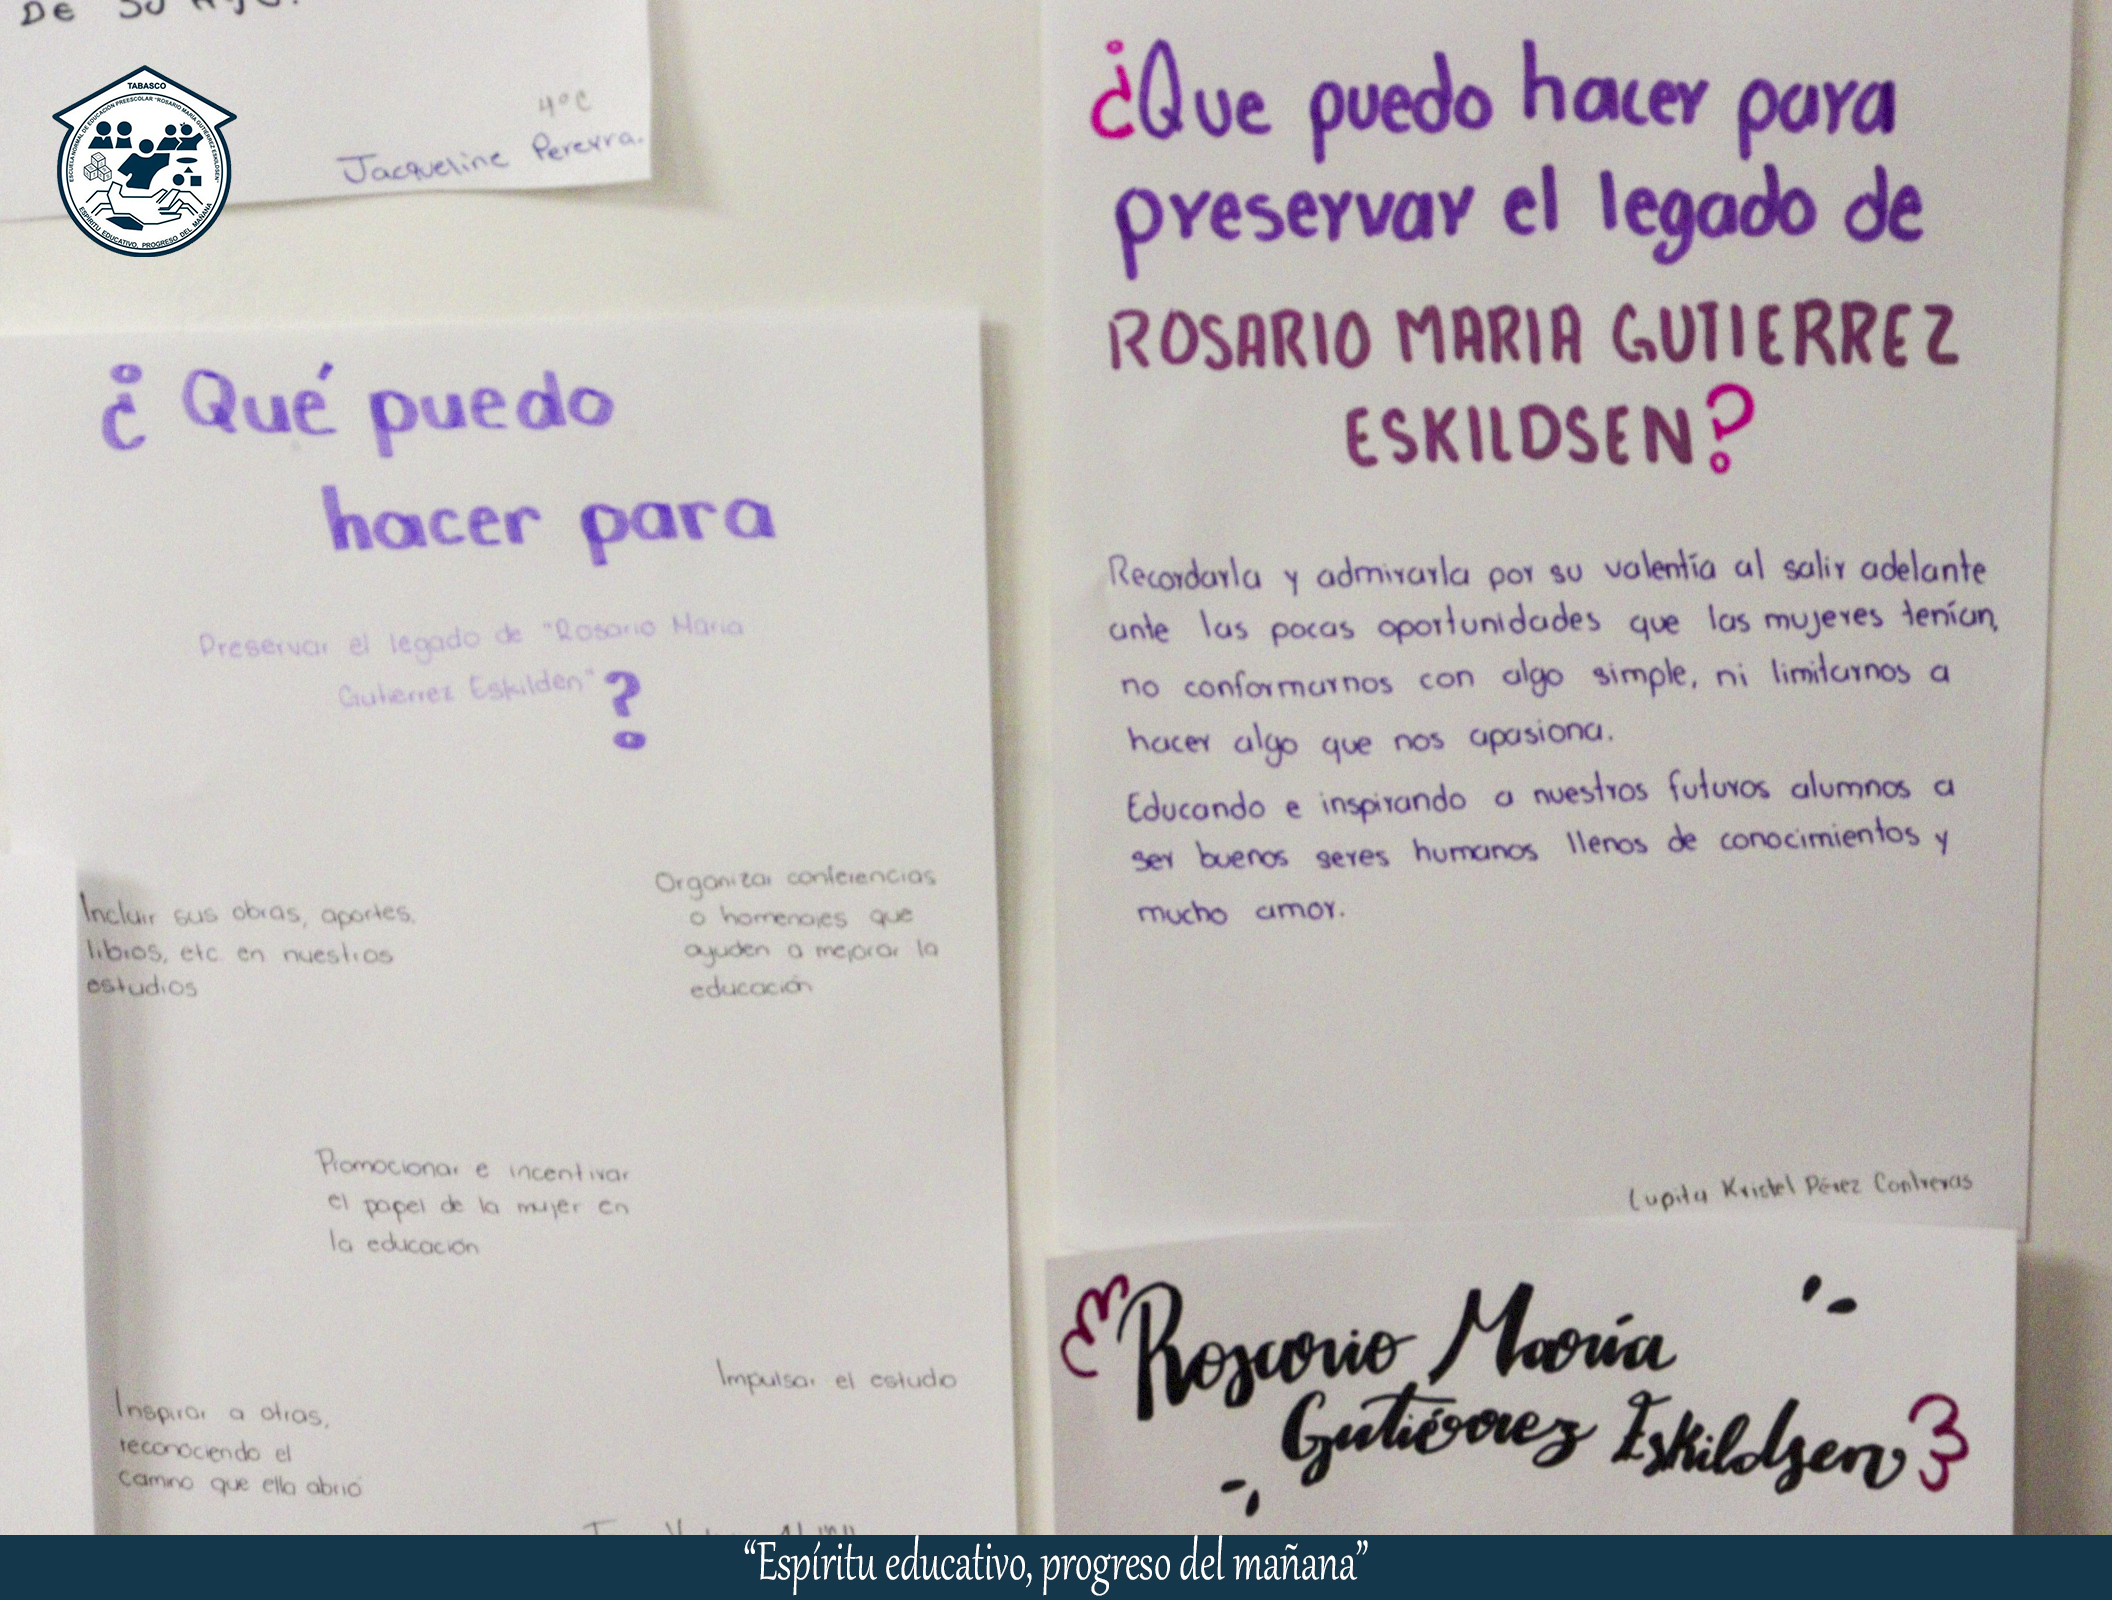 De su hijo.
4°C
Jacqueline Pereyra.
TABASCO
ESCUELA NORMAL DE EDUCACIÓN PREESCOLAR "ROSARIO MARÍA GUTIÉRREZ ESKILDSEN"
ESPÍRITU EDUCATIVO, PROGRESO DEL MAÑANA
¿Qué puedo
hacer para
Preservar el legado de "Rosario Maria
Gutierrez Eskilden"?
Incluir sus obras, aportes,
libros, etc en nuestros
estudios
Organizar conferencias
o homenajes que
ayuden a mejorar la
educación
Promocionar e incentivar
el papel de la mujer en
la educación
Impulsar el estudio
Inspirar a otras,
reconociendo el
camino que ella abrió
¿Que puedo hacer para
preservar el legado de
ROSARIO MARIA GUTIERREZ
ESKILDSEN?
Recordarla y admirarla por su valentía al salir adelante
ante las pocas oportunidades que las mujeres tenían,
no conformarnos con algo simple, ni limitarnos a
hacer algo que nos apasiona.
Educando e inspirando a nuestros futuros alumnos a
ser buenos seres humanos llenos de conocimientos y
mucho amor.
Lupita Kristel Pérez Contreras
Rosario María
Gutiérrez Eskildsen
“Espíritu educativo, progreso del mañana”